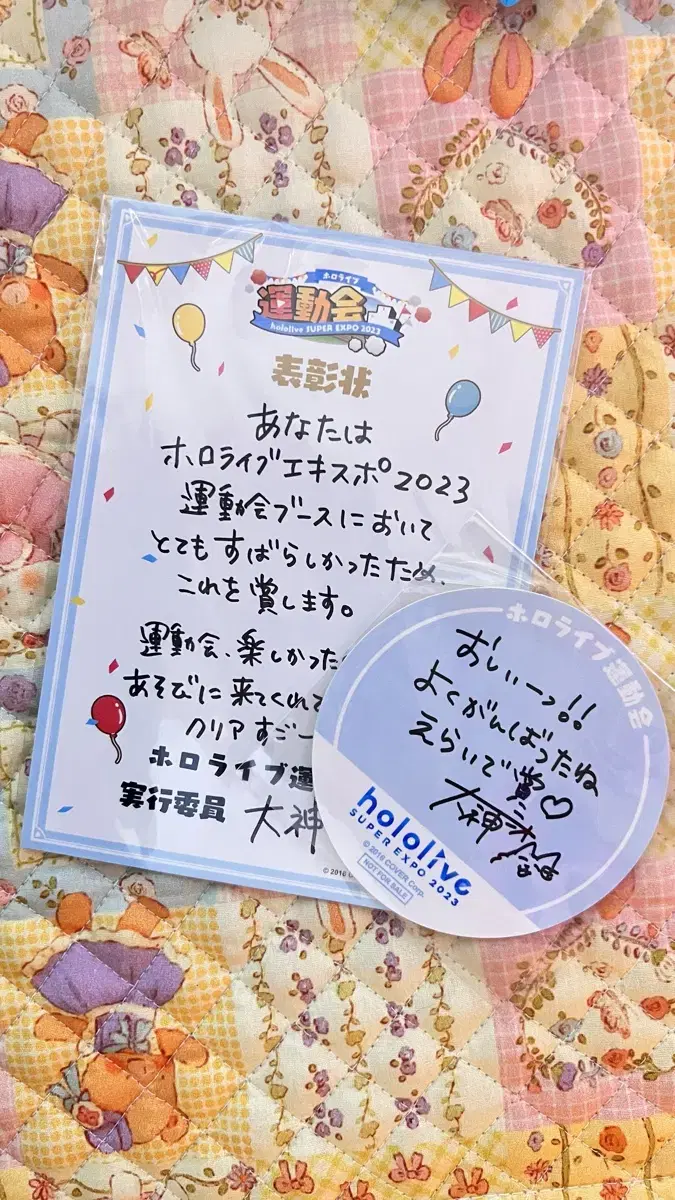 ホロライブ
運動会
hololive SUPER EXPO 2023
表彰状
あなたは
ホロライブエキスポ2023
運動会ブースにおいて
とてもすばらしかったため、
これを賞します。
運動会、楽しかった
あそびに来てくれて
クリアすごー
ホロライブ運
実行委員 大神
© 2016 C
ホロライブ運動会
おしぃーっ!!
よくがんばったね
えらいで賞♡
大神ミオ
hololive
SUPER EXPO 2023
© 2016 COVER Corp.
NOT FOR SALE